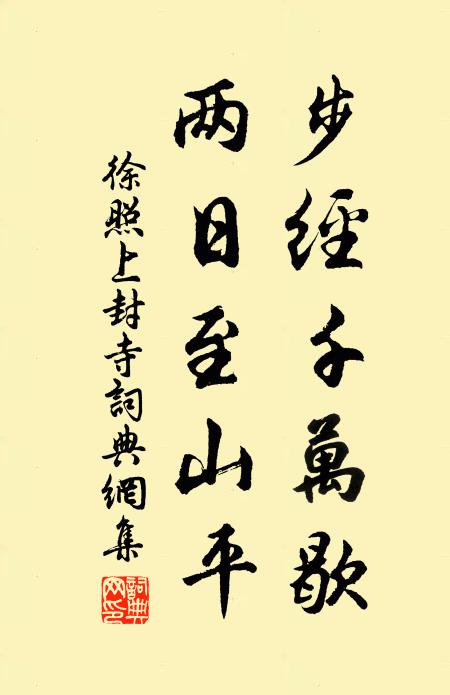 步經千萬歇
两日至山平
徐照上封寺詞典網集
詞典网印